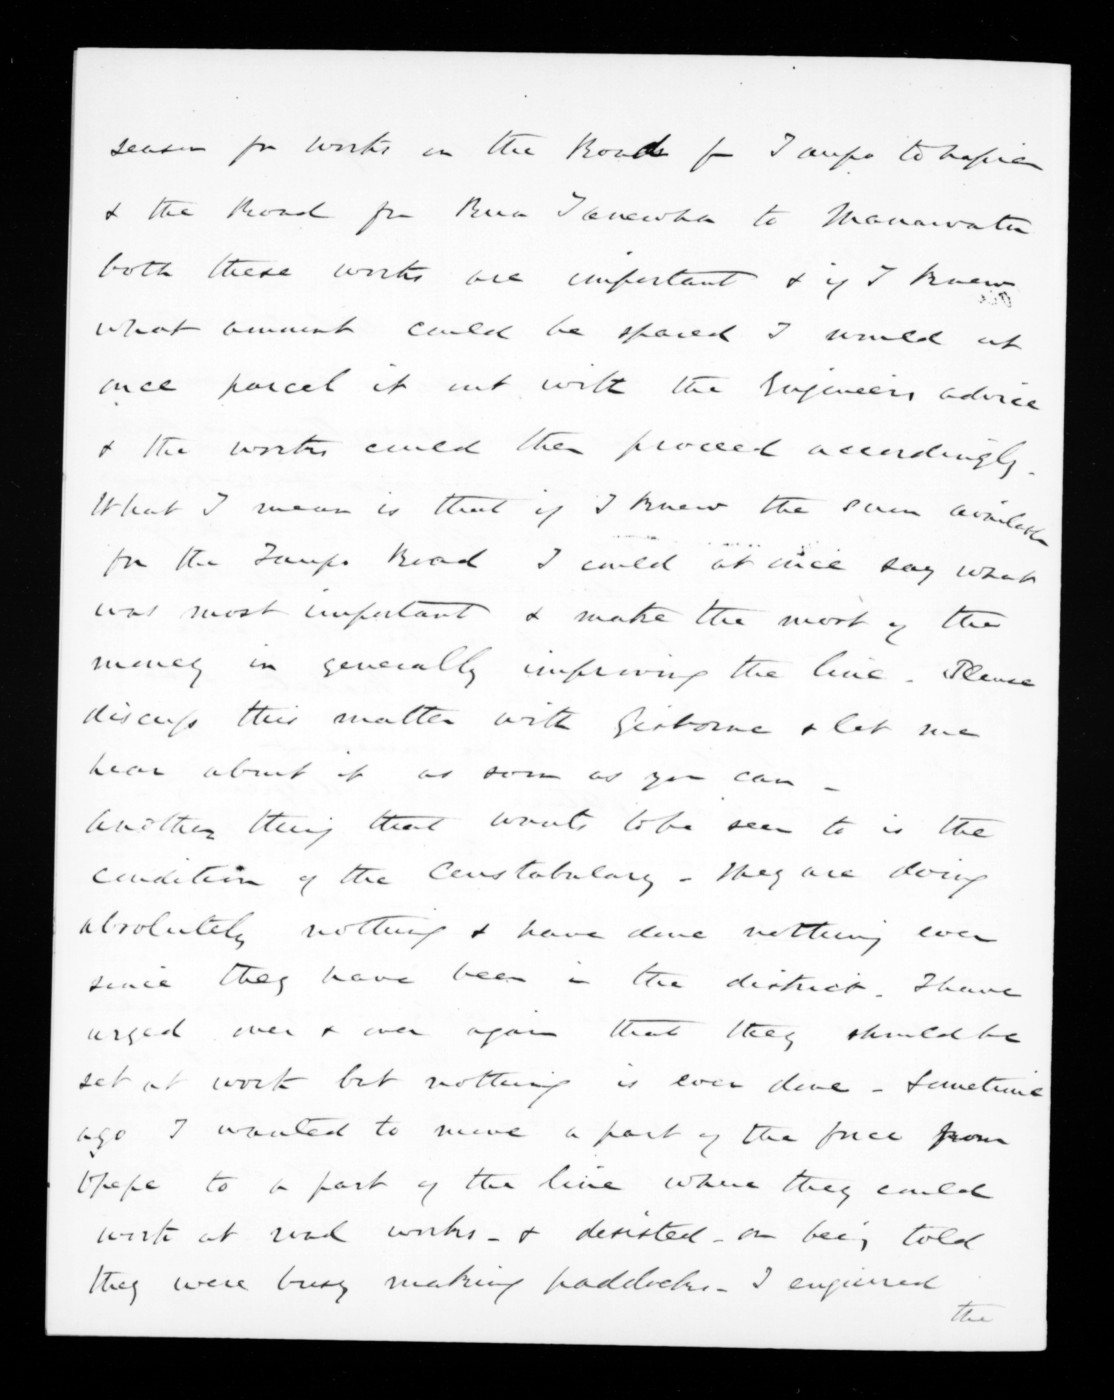 season for works on the Road fr Taupo to Napier
& the Road for Rua Tanewha to Manawatu
both these works are important & if I knew
what amount could be spared I would at
once parcel it out with the Engineers advice
& the works could then proceed accordingly.
What I mean is that if I knew the sum available
for the Taupo Road I could at once say what
was most important & make the most of the
money in generally improving the line. Please
discuss this matter with Gisborne & let me
hear about it as soon as you can -
Another thing that wants to be seen to is the
condition of the Constabulary - They are doing
absolutely nothing & have done nothing ever
since they have been in the district. I have
urged over & over again that they should be
set at work but nothing is ever done - Sometime
ago I wanted to move a part of the force from
Opepe to a part of the line where they could
work at road works - & desisted - on being told
they were busy making paddocks - I enquired
the